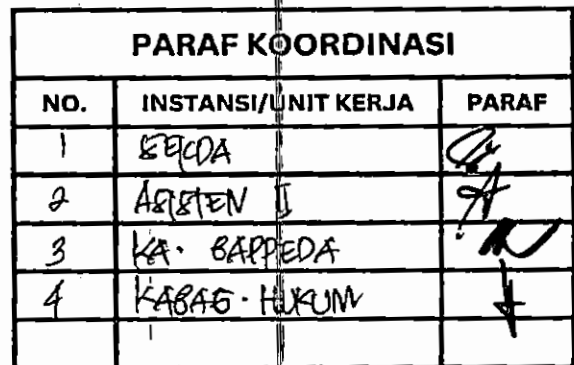 PARAF KOORDINASI
NO. INSTANSI/UNIT KERJA PARAF
1 SEKDA
2 ASISTEN II
3 KA. BAPPEDA
4 KABAG. HUKUM